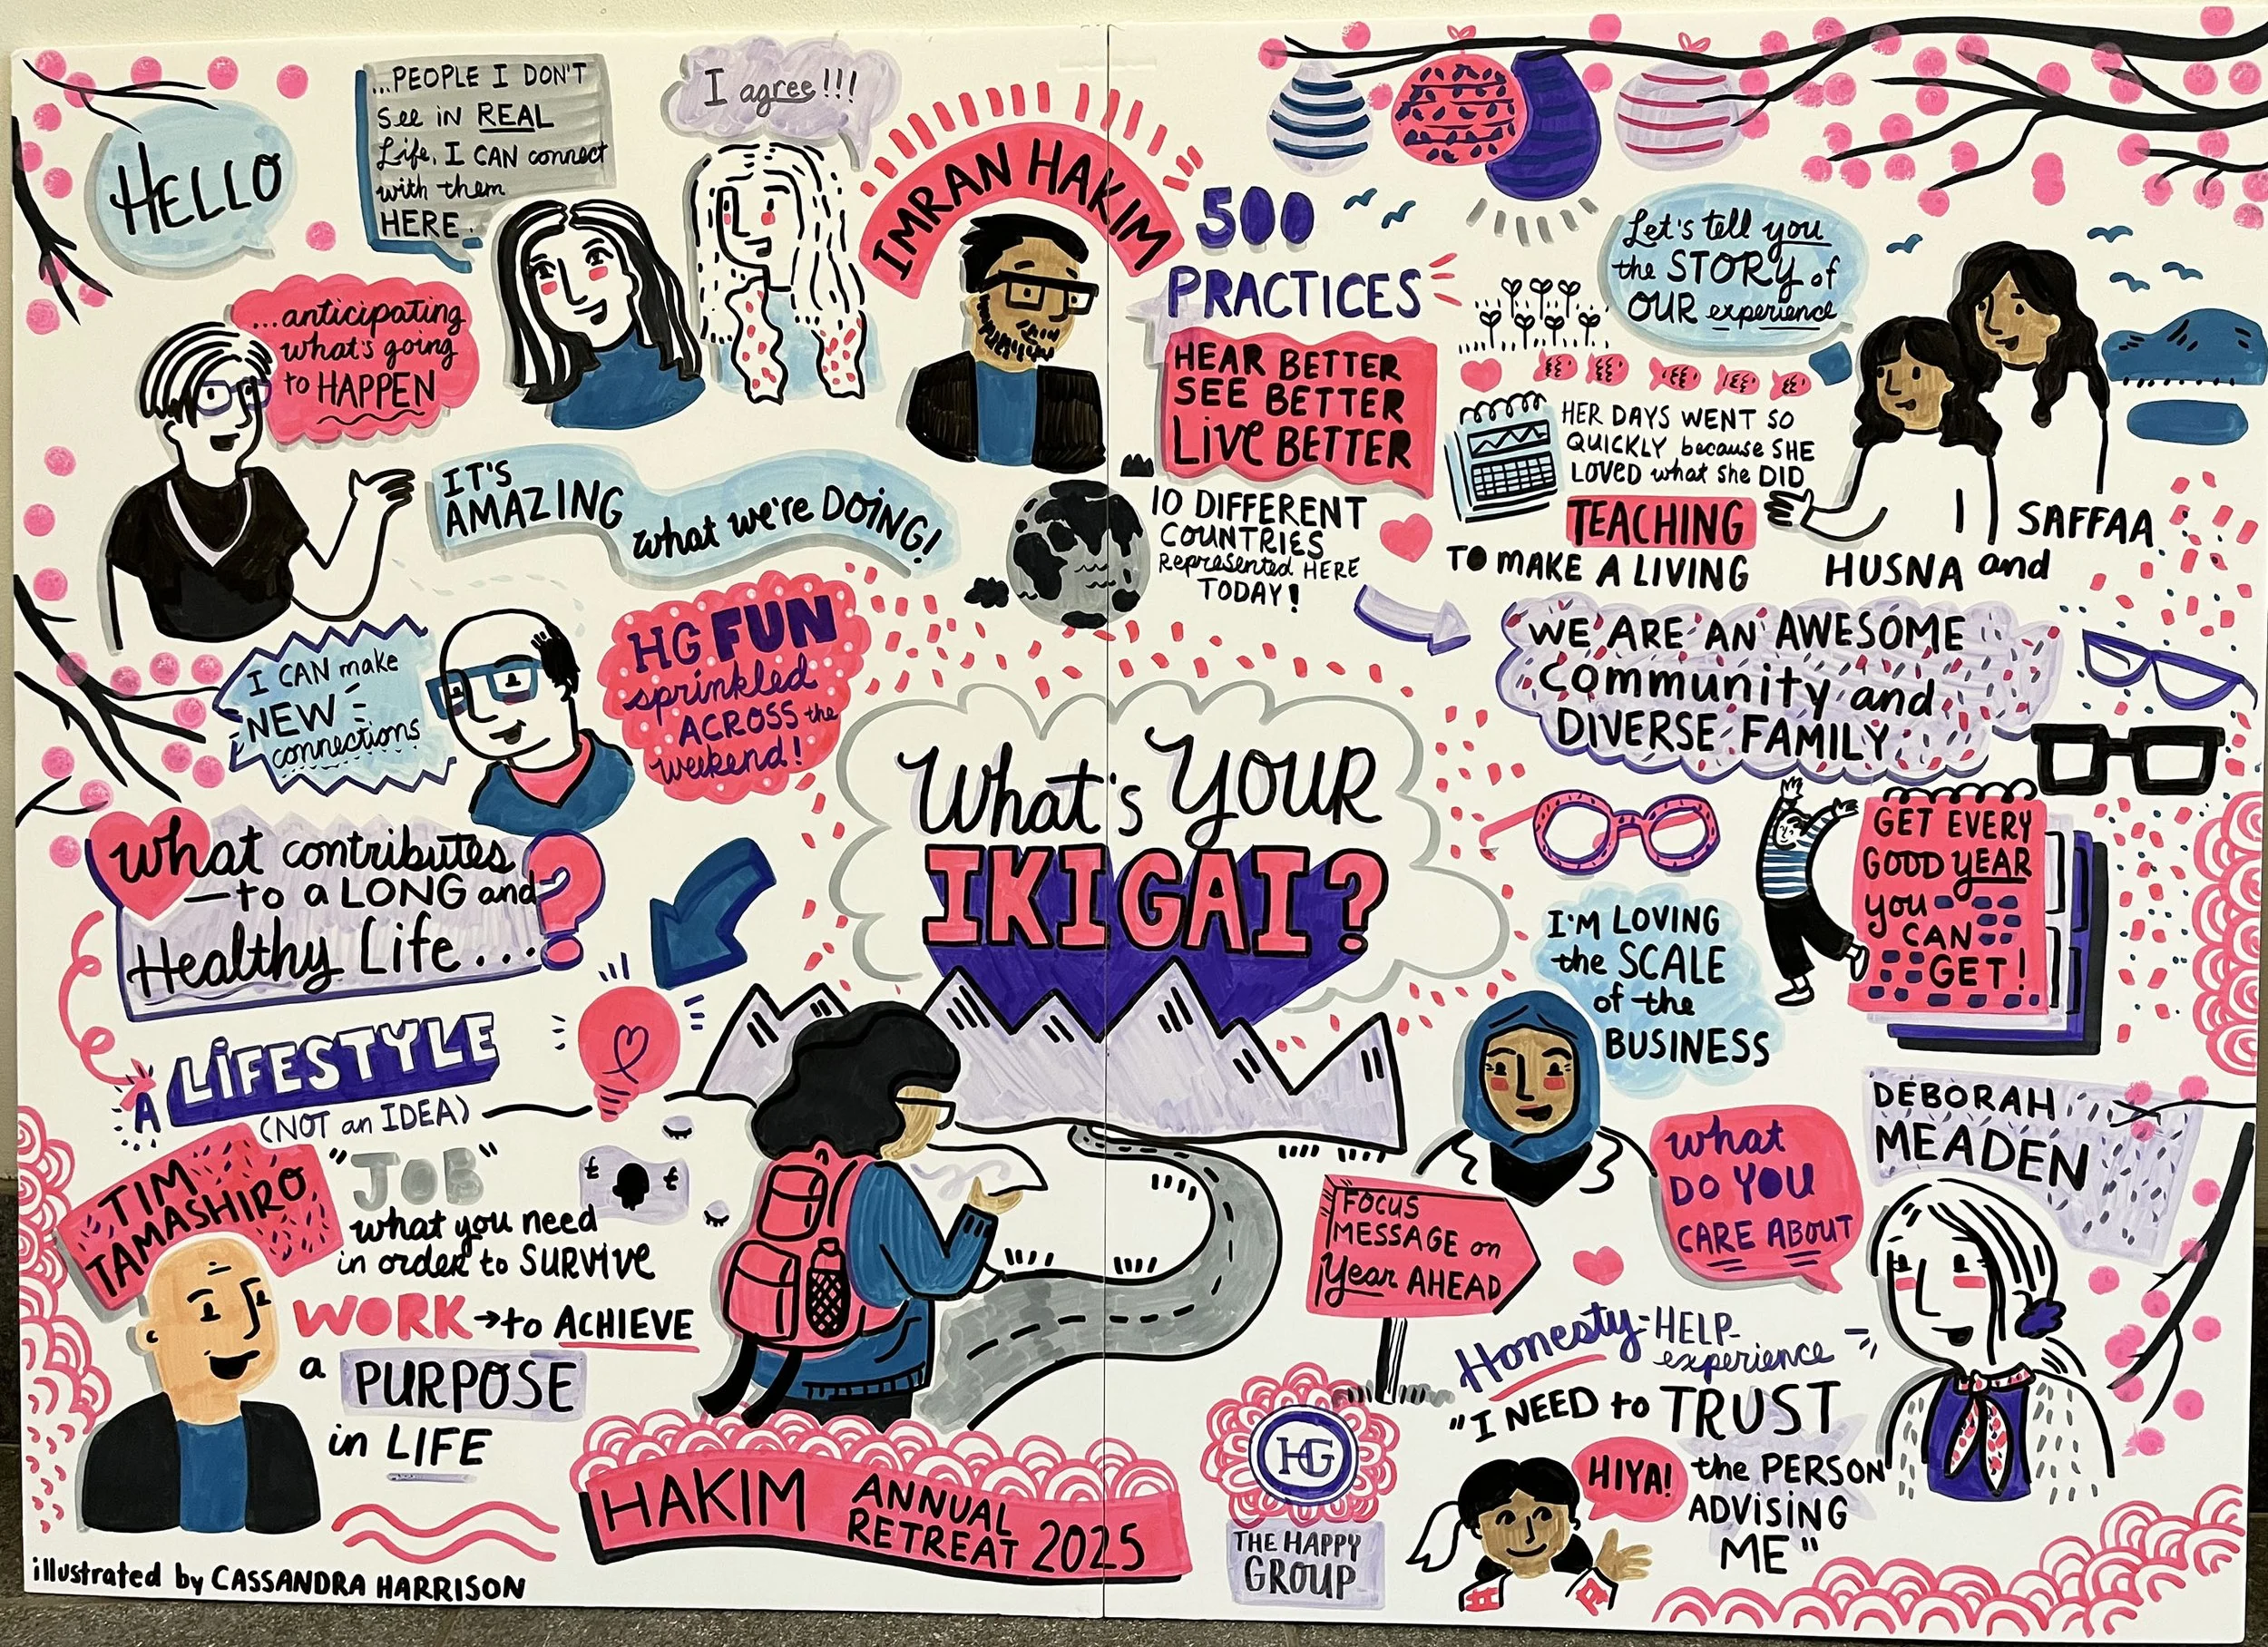 HELLO
...PEOPLE I DON'T
see in REAL
Life, I CAN connect
with them
HERE.
I agree!!!
...anticipating
what's going
to HAPPEN
IT'S
AMAZING
what we're DOING!
I CAN make
NEW
connections
HG FUN
sprinkled
ACROSS the
weekend!
What contributes
to a LONG and
Healthy Life...?
A LIFESTYLE
(NOT an IDEA)
TIM
TAMASHIRO
"JOB"
what you need
in order to SURVIVE
WORK → to ACHIEVE
a PURPOSE
in LIFE
£ £
illustrated by CASSANDRA HARRISON
IMRAN HAKIM
500
PRACTICES
HEAR BETTER
SEE BETTER
LIVE BETTER
10 DIFFERENT
COUNTRIES
Represented HERE
TODAY!
What's YOUR
IKIGAI?
HAKIM ANNUAL
RETREAT 2025
Let's tell you
the STORY of
OUR experience
HER DAYS WENT SO
QUICKLY because SHE
LOVED what she DID
TEACHING
TO MAKE A LIVING
HUSNA and
SAFFAA
WE ARE AN AWESOME
Community and
DIVERSE FAMILY
GET EVERY
GOOD YEAR
you
CAN
GET!
I'M LOVING
the SCALE
of the
BUSINESS
FOCUS
MESSAGE on
Year AHEAD
What
DO YOU
CARE ABOUT
DEBORAH
MEADEN
Honesty-HELP-
experience
"I NEED to TRUST
the PERSON
ADVISING
ME"
HIYA!
HG
THE HAPPY
GROUP